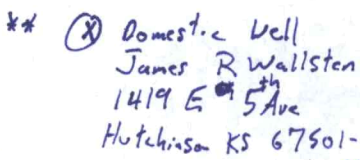 ** (X) Domestic Well
James R Wallsten
1419 E 5th Ave
Hutchinson KS 67501-